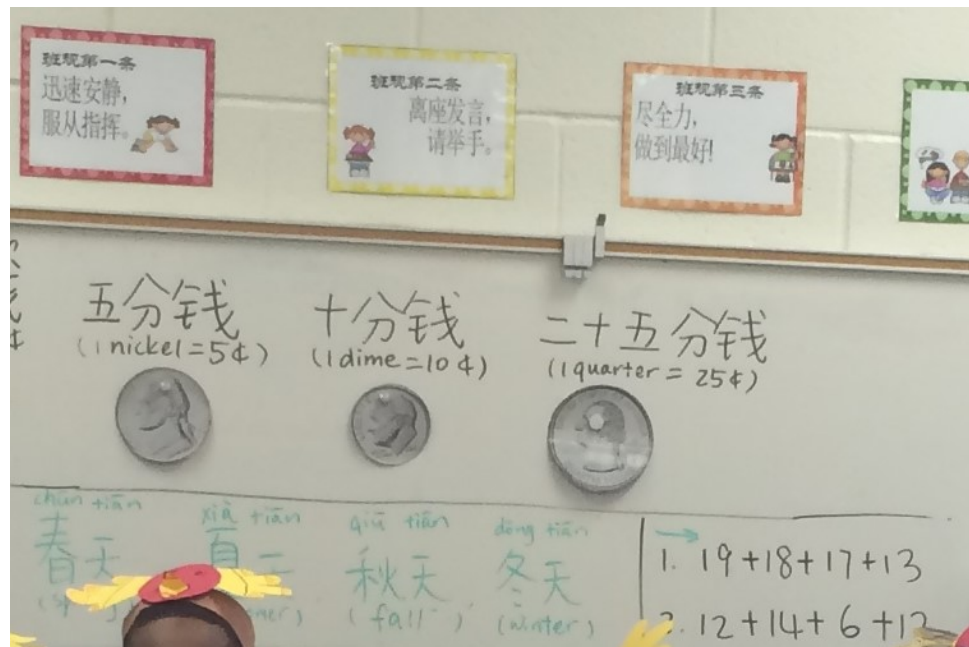 班规第一条
迅速安静，
服从指挥。
班规第二条
离座发言，
请举手。
班规第三条
尽全力，
做到最好!
五分钱
(1 nickel = 5¢)
十分钱
(1 dime = 10¢)
二十五分钱
(1 quarter = 25¢)
chūn tiān
春天
xià tiān
夏
qiū tiān
秋天
(fall)
dōng tiān
冬天
(winter)
1. 19+18+17+13
2. 12+14+6+12